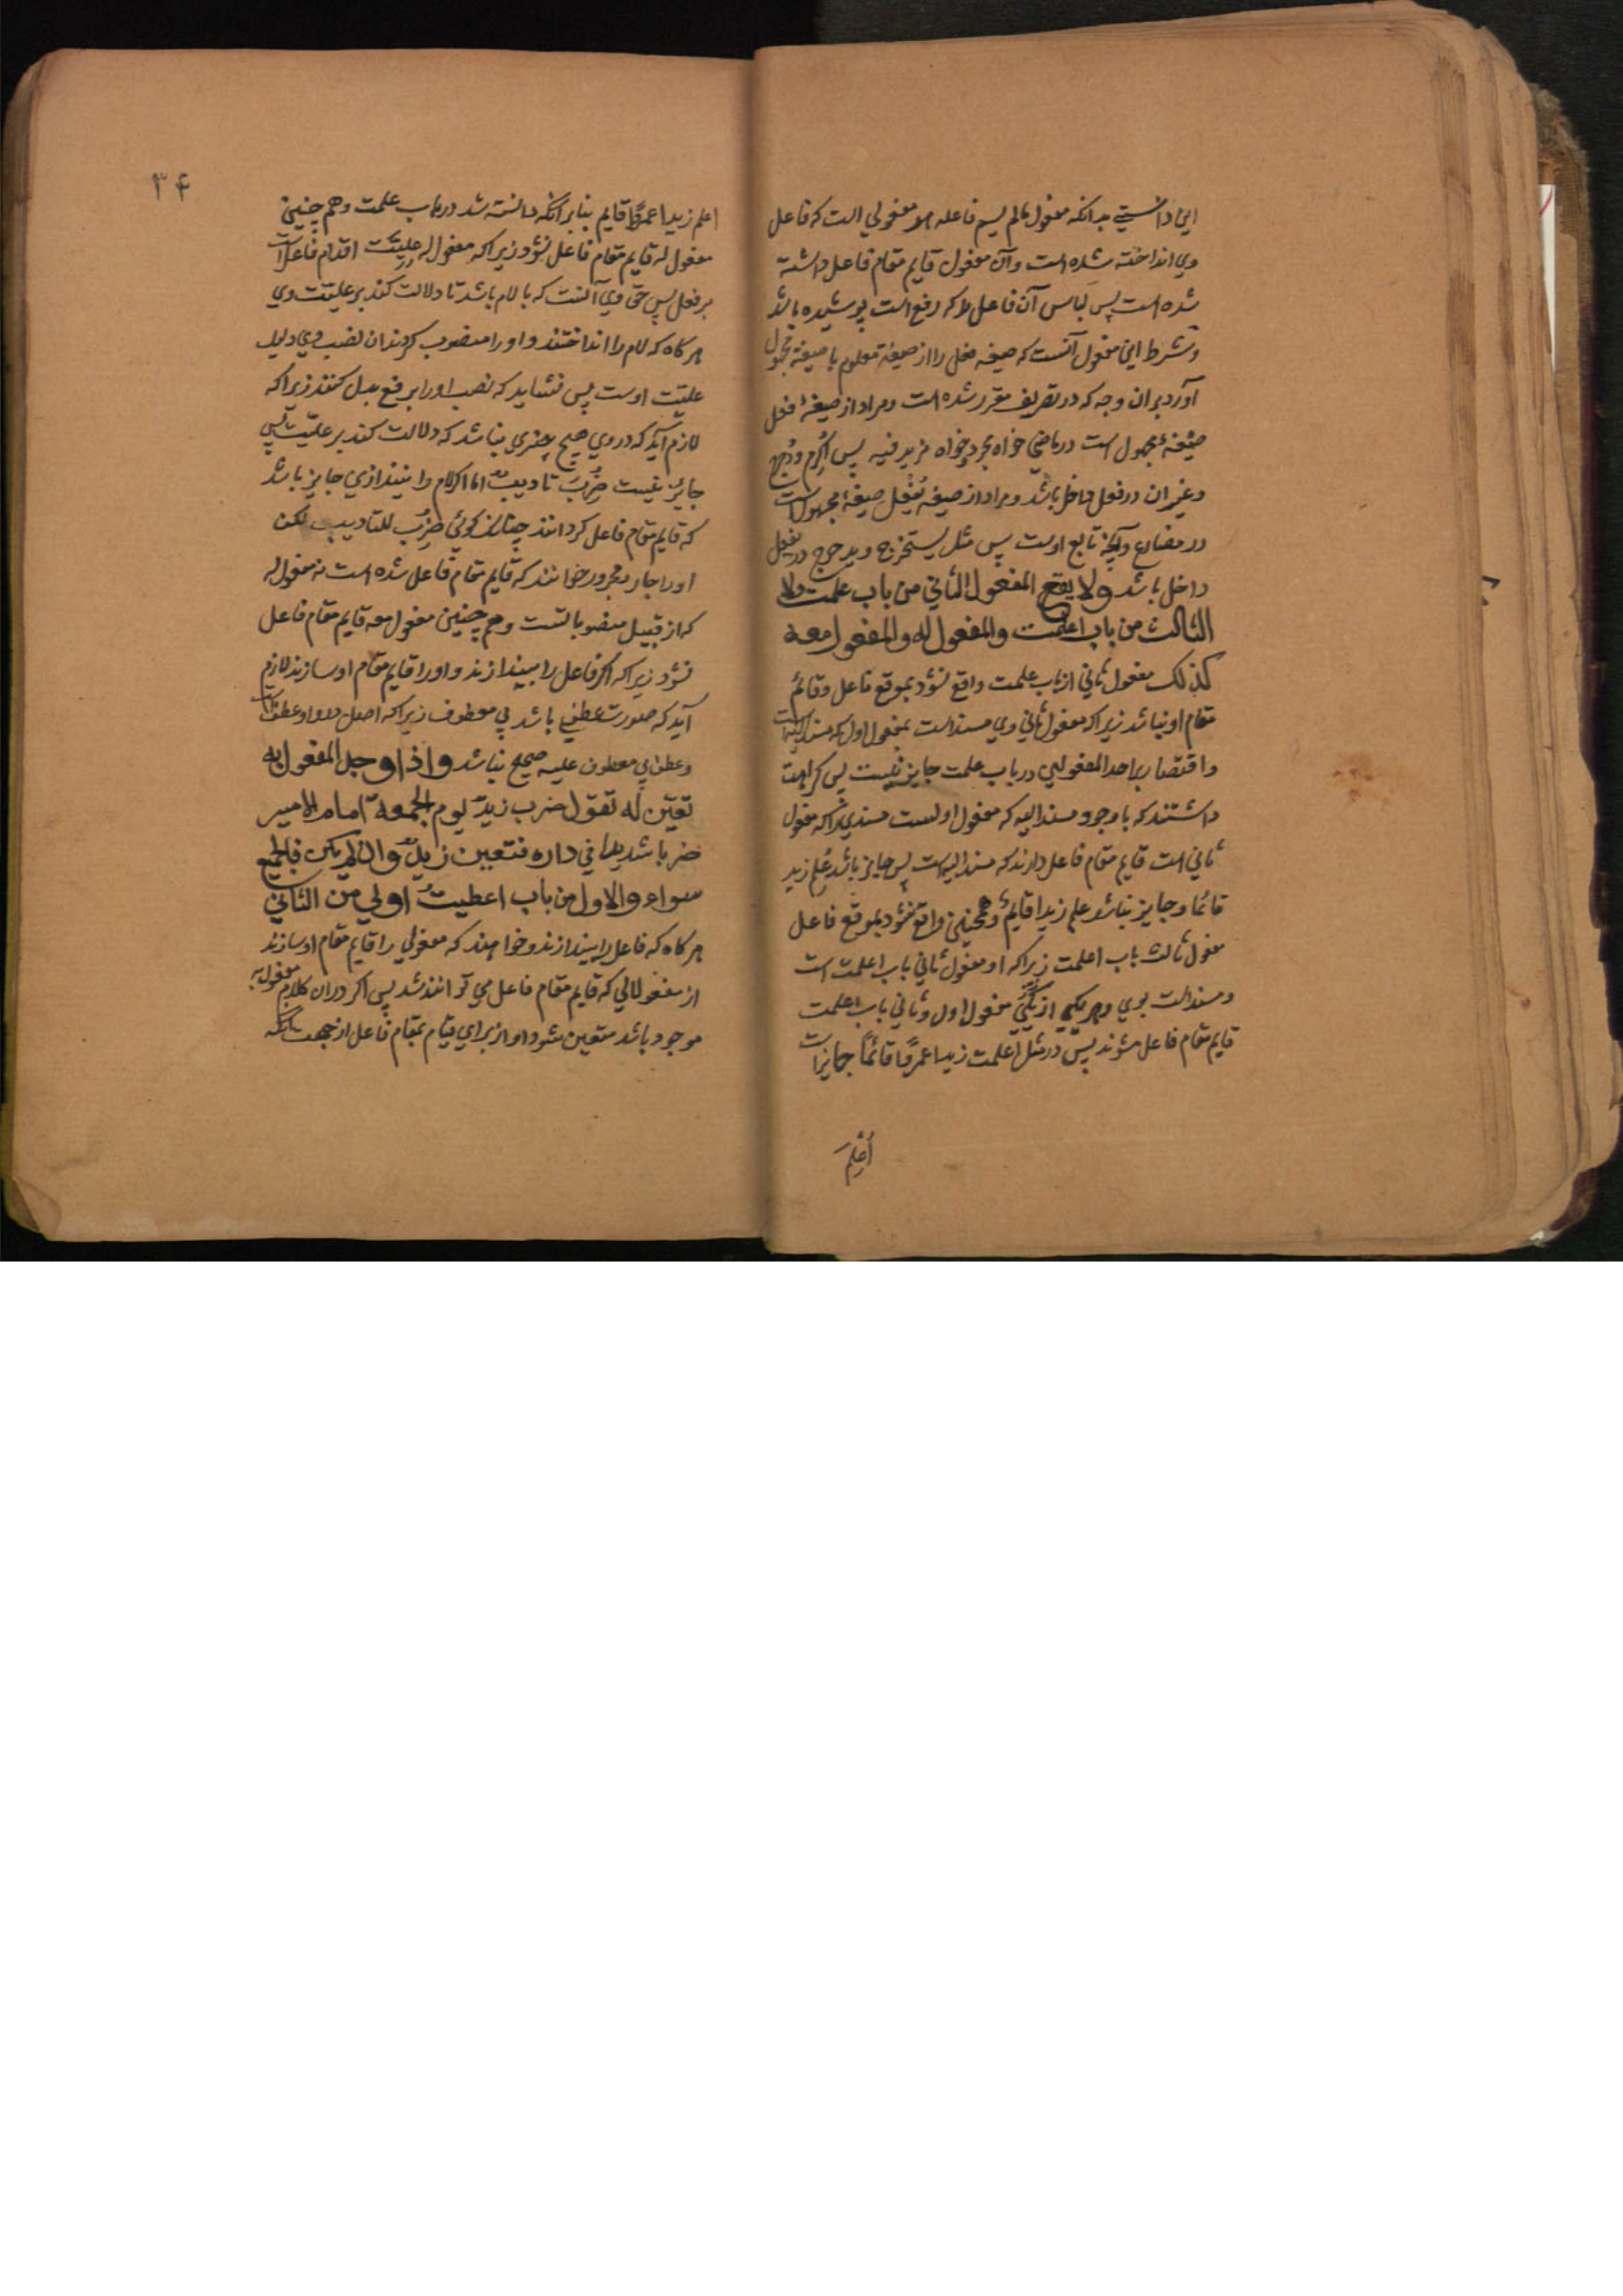 این دانستی بدانکه مفعول مالم یسم فاعله هر مفعولی است که فاعل
وی انداخته شده است و آن مفعول قایم مقام فاعل داشته
شده است پس لباس آن فاعل را که رفع است پوشیده باشد
و شرط این مفعول آنست که صیغه فعل را از صیغهٔ معلوم با صیغهٔ مجهول
آورد بران وجه که در تصریف مقرر شده است و مراد از صیغهٔ فعل
صیغهٔ مجهول است در ماضی خواه مجرد خواه مزید فیه پس اُکرِم و دُحرِج
و غیر ان در فعل داخل باشد و مراد از صیغه یُفعَل صیغهٔ مجهول است
در مضارع و آنچه تابع اوست پس مثل یستخرج و یدحرج در یفعل
داخل باشد ولا یقع المفعول الثانی من باب علمت ولا
الثالث من باب اعلمت والمفعول له والمفعول معه
کذلک مفعول ثانی از باب علمت واقع نشود بموقع فاعل و قائم
مقام او نباشد زیراکه مفعول ثانی وی مسند است بمفعول اول که مسند الیه است
و اقتصار بر احد المفعولین در باب علمت جایز نیست پس کراهت
داشتند که با وجود مسند الیه که مفعول اولست مسندی را که مفعول
ثانی است قایم مقام فاعل دارند که مسند الیه است پس جایز باشد عُلِم زید
قائما و جایز نباشد علم زیدا قایمٌ و همچنین واقع نشود بموقع فاعل
مفعول ثالث باب اعلمت زیراکه او مفعول ثانی باب اعلمت است
و مسند است بوی و هر یکی از مفعول اول و ثانی باب اعلمت
قایم مقام فاعل شوند پس در مثل اعلمت زیدا عمرًا قائمًا جایز است
اُعْلِمَ
۳۴
اعلم زیدا عمرًا قایم بنابر انکه دانسته شد در باب علمت و هم چنین
مفعول له قایم مقام فاعل نشود زیراکه مفعول له علیّت اقدام فاعل است
بر فعل پس حق وی آنست که با لام باشد تا دلالت کند بر علیّت وی
هرگاه که لام را انداختند و او را منصوب کردند ان نصب وی دلیل
علیّت اوست پس نشاید که نصب او را برفع بدل کنند زیراکه
لازم آید که در وی هیچ چیزی نباشد که دلالت کند بر علیّت پس
جایز نیست ضُرِبَ تادیبٌ اما اگر لام را نیندازی جایز باشد
که قایم مقام فاعل گردانند چنانکه گوئی ضُرِبَ للتادیب لکن
او را جار مجرور خوانند که قایم مقام فاعل شده است نه مفعول له
که از قبیل منصوباتست و هم چنین مفعول معه قایم مقام فاعل
نشود زیراکه اگر فاعل را بیندازند و او را قایم مقام او سازند لازم
آید که صورت عطفی باشد بی معطوف زیراکه اصل در واو عطف است
و عطف بی معطوف علیه صحیح نباشد واذا وجد المفعول به
تعیّن له تقول ضرب زیدٌ یوم الجمعة امام الامیر
ضربا شدیدا فی داره فتعین زیدٌ وان لم یکن فالجمیع
سواء والاول من باب اعطیت اولی من الثانی
هرگاه که فاعل را بیندازند و خواهند که مفعولی را قایم مقام او سازند
از مفعولاتی که قایم مقام فاعل می توانند شد پس اگر دران کلام مفعول به
موجود باشد متعین شود او از برای قیام بمقام فاعل از جهت آنکه